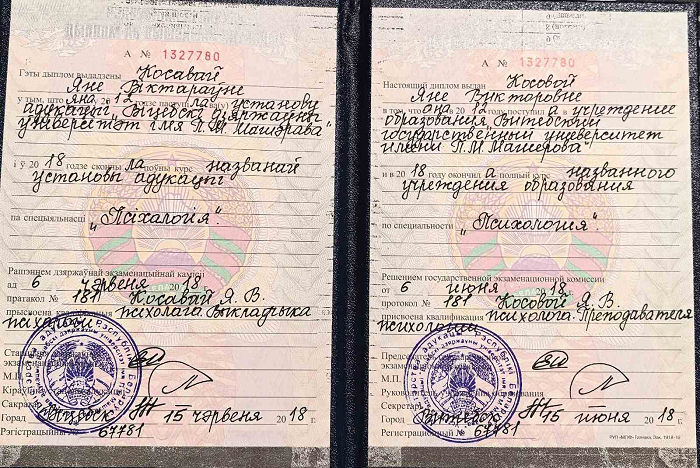 А № 1327780
Гэты дыплом выдадзены Косавай
Яне Віктараўне
у тым, што яна 12
ла установу
адукацыі „Віцебскі дзяржаўны
універсітэт імя П.М. Машэрава"
і ў 2018 годзе скончы ла поўны курс названай
установы адукацыі
па спецыяльнасці „Псіхалогія".
Рашэннем дзяржаўнай экзаменацыйнай камісіі
ад 6 чэрвеня 2018 г.
пратакол № 181 Косавай Я. В.
прысвоена кваліфікацыя псіхолага. Выкладчыка
псіхалогіі
М.П.
Горад Віцебск 15 чэрвеня 2018 г.
Рэгістрацыйны № 67781
А № 1327780
Настоящий диплом выдан Косовой
Яне Викторовне
в том, что она 12 поступил а в учреждение
образования „Витебский
государственный университет
имени П.М. Машерова"
и в 2018 году окончил а полный курс названного
учреждения образования
по специальности „Психология".
Решением государственной экзаменационной комиссии
от 6 июня 2018 г.
протокол № 181 Косовой Я. В.
присвоена квалификация психолога. Преподавателя
психологии
М.П.
Город Витебск 15 июня 2018 г.
Регистрационный № 67781